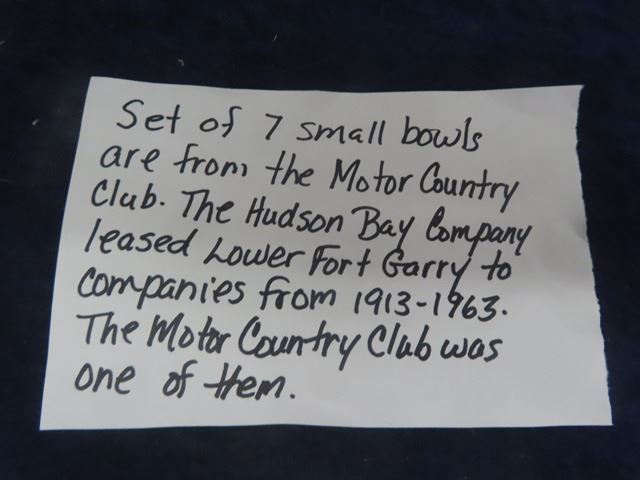 Set of 7 small bowls
are from the Motor Country
Club. The Hudson Bay Company
leased Lower Fort Garry to
companies from 1913-1963.
The Motor Country Club was
one of them.